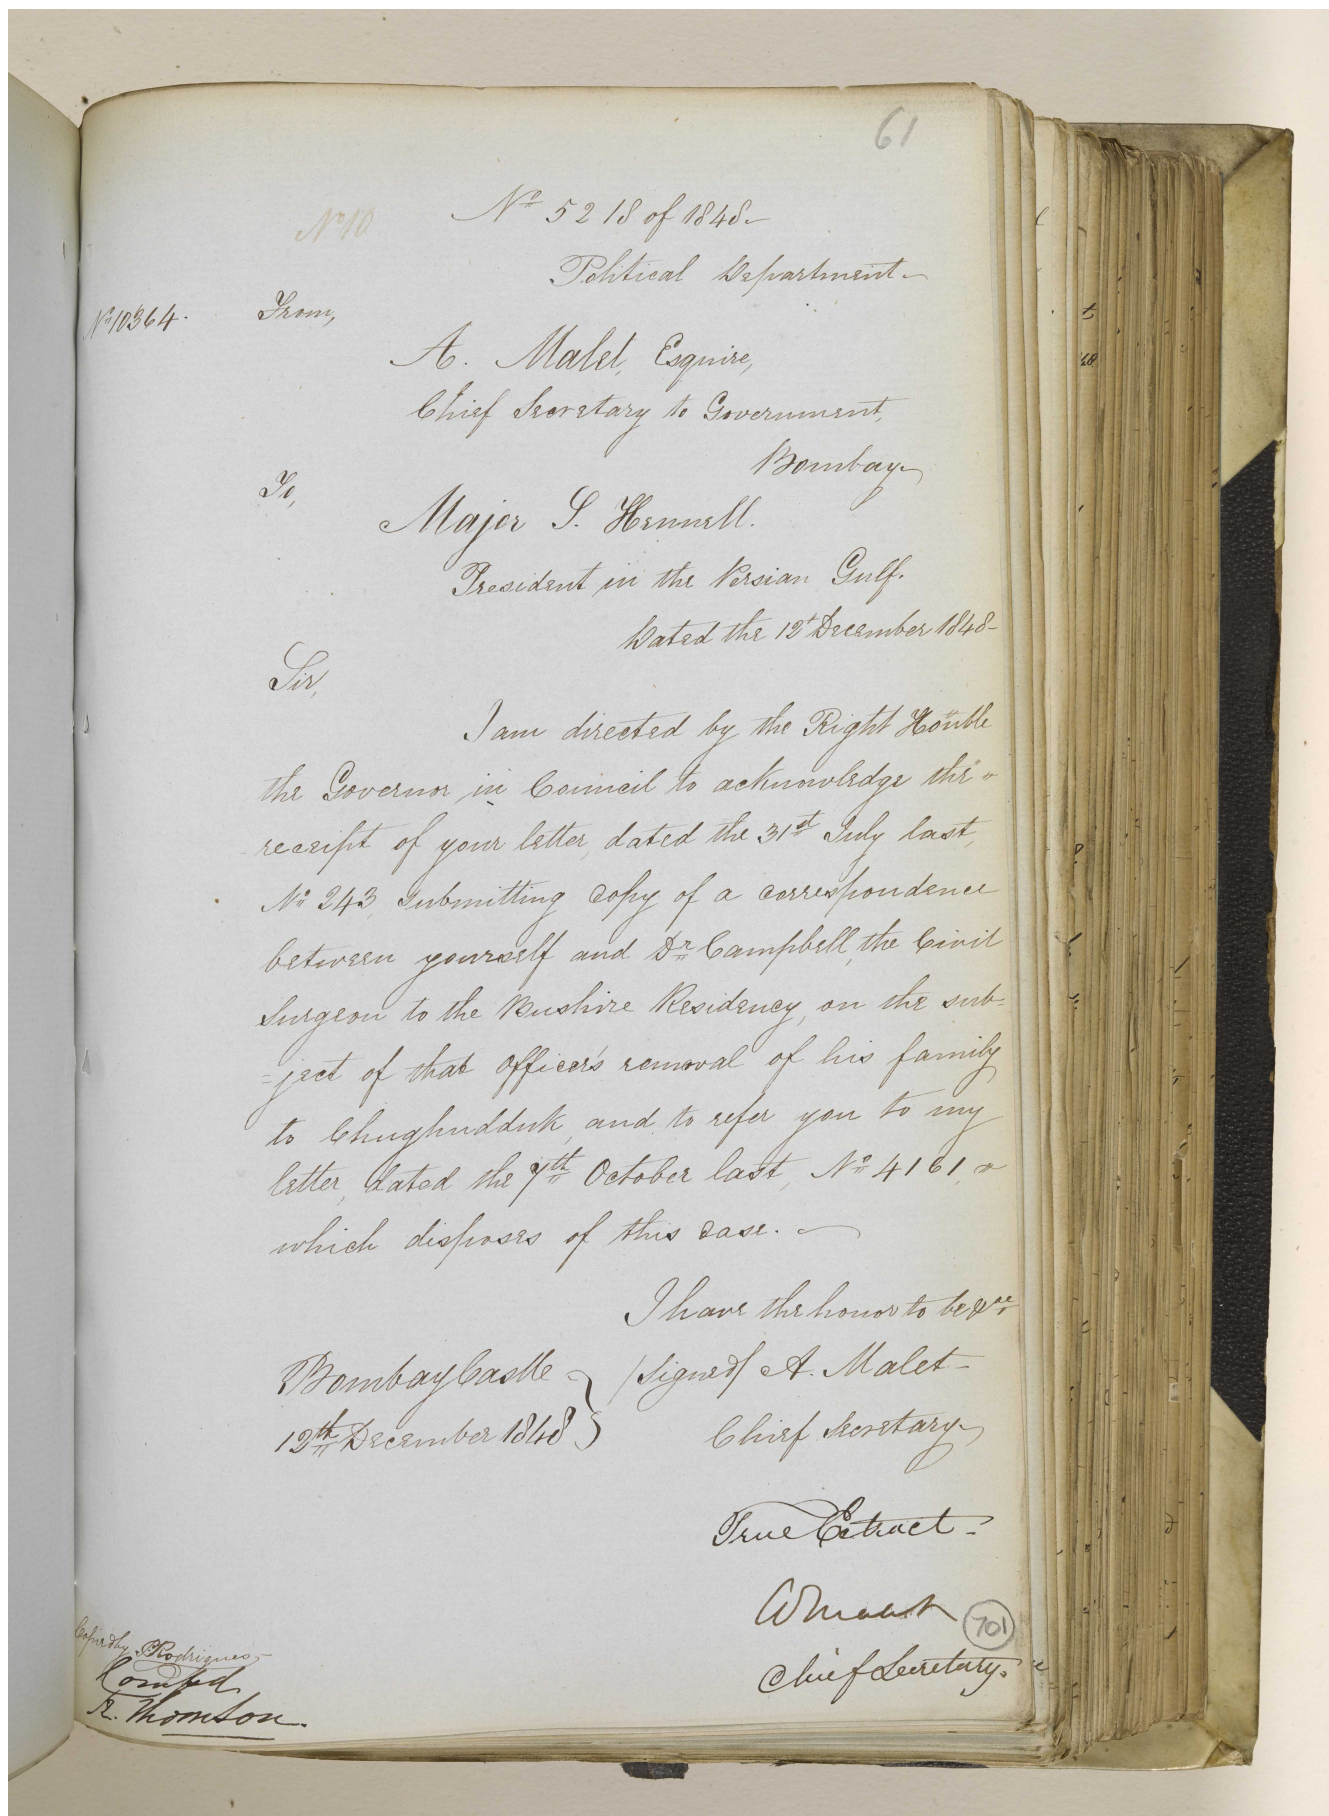 61
No 10
No 5218 of 1848
Political Department
No 10364.
From,
A. Malet, Esquire,
Chief Secretary to Government,
Bombay
To,
Major S. Hennell.
President in the Persian Gulf.
Dated the 12th December 1848
Sir,
I am directed by the Right Honble
the Governor in Council to acknowledge the
receipt of your letter, dated the 31st July last,
No 243, submitting copy of a correspondence
between yourself and Dr Campbell, the Civil
Surgeon to the Bushire Residency, on the sub-
=ject of that officer's removal of his family
to Chughudduk, and to refer you to my
letter, dated the 7th October last, No 4161,
which disposes of this case.
I have the honor to be &ca
Bombay Castle } /Signed/ A. Malet
12th December 1848 } Chief Secretary
True Extract.
701
Chief Secretary.
Copied by Rodrigues
Compd
R. Thomson.